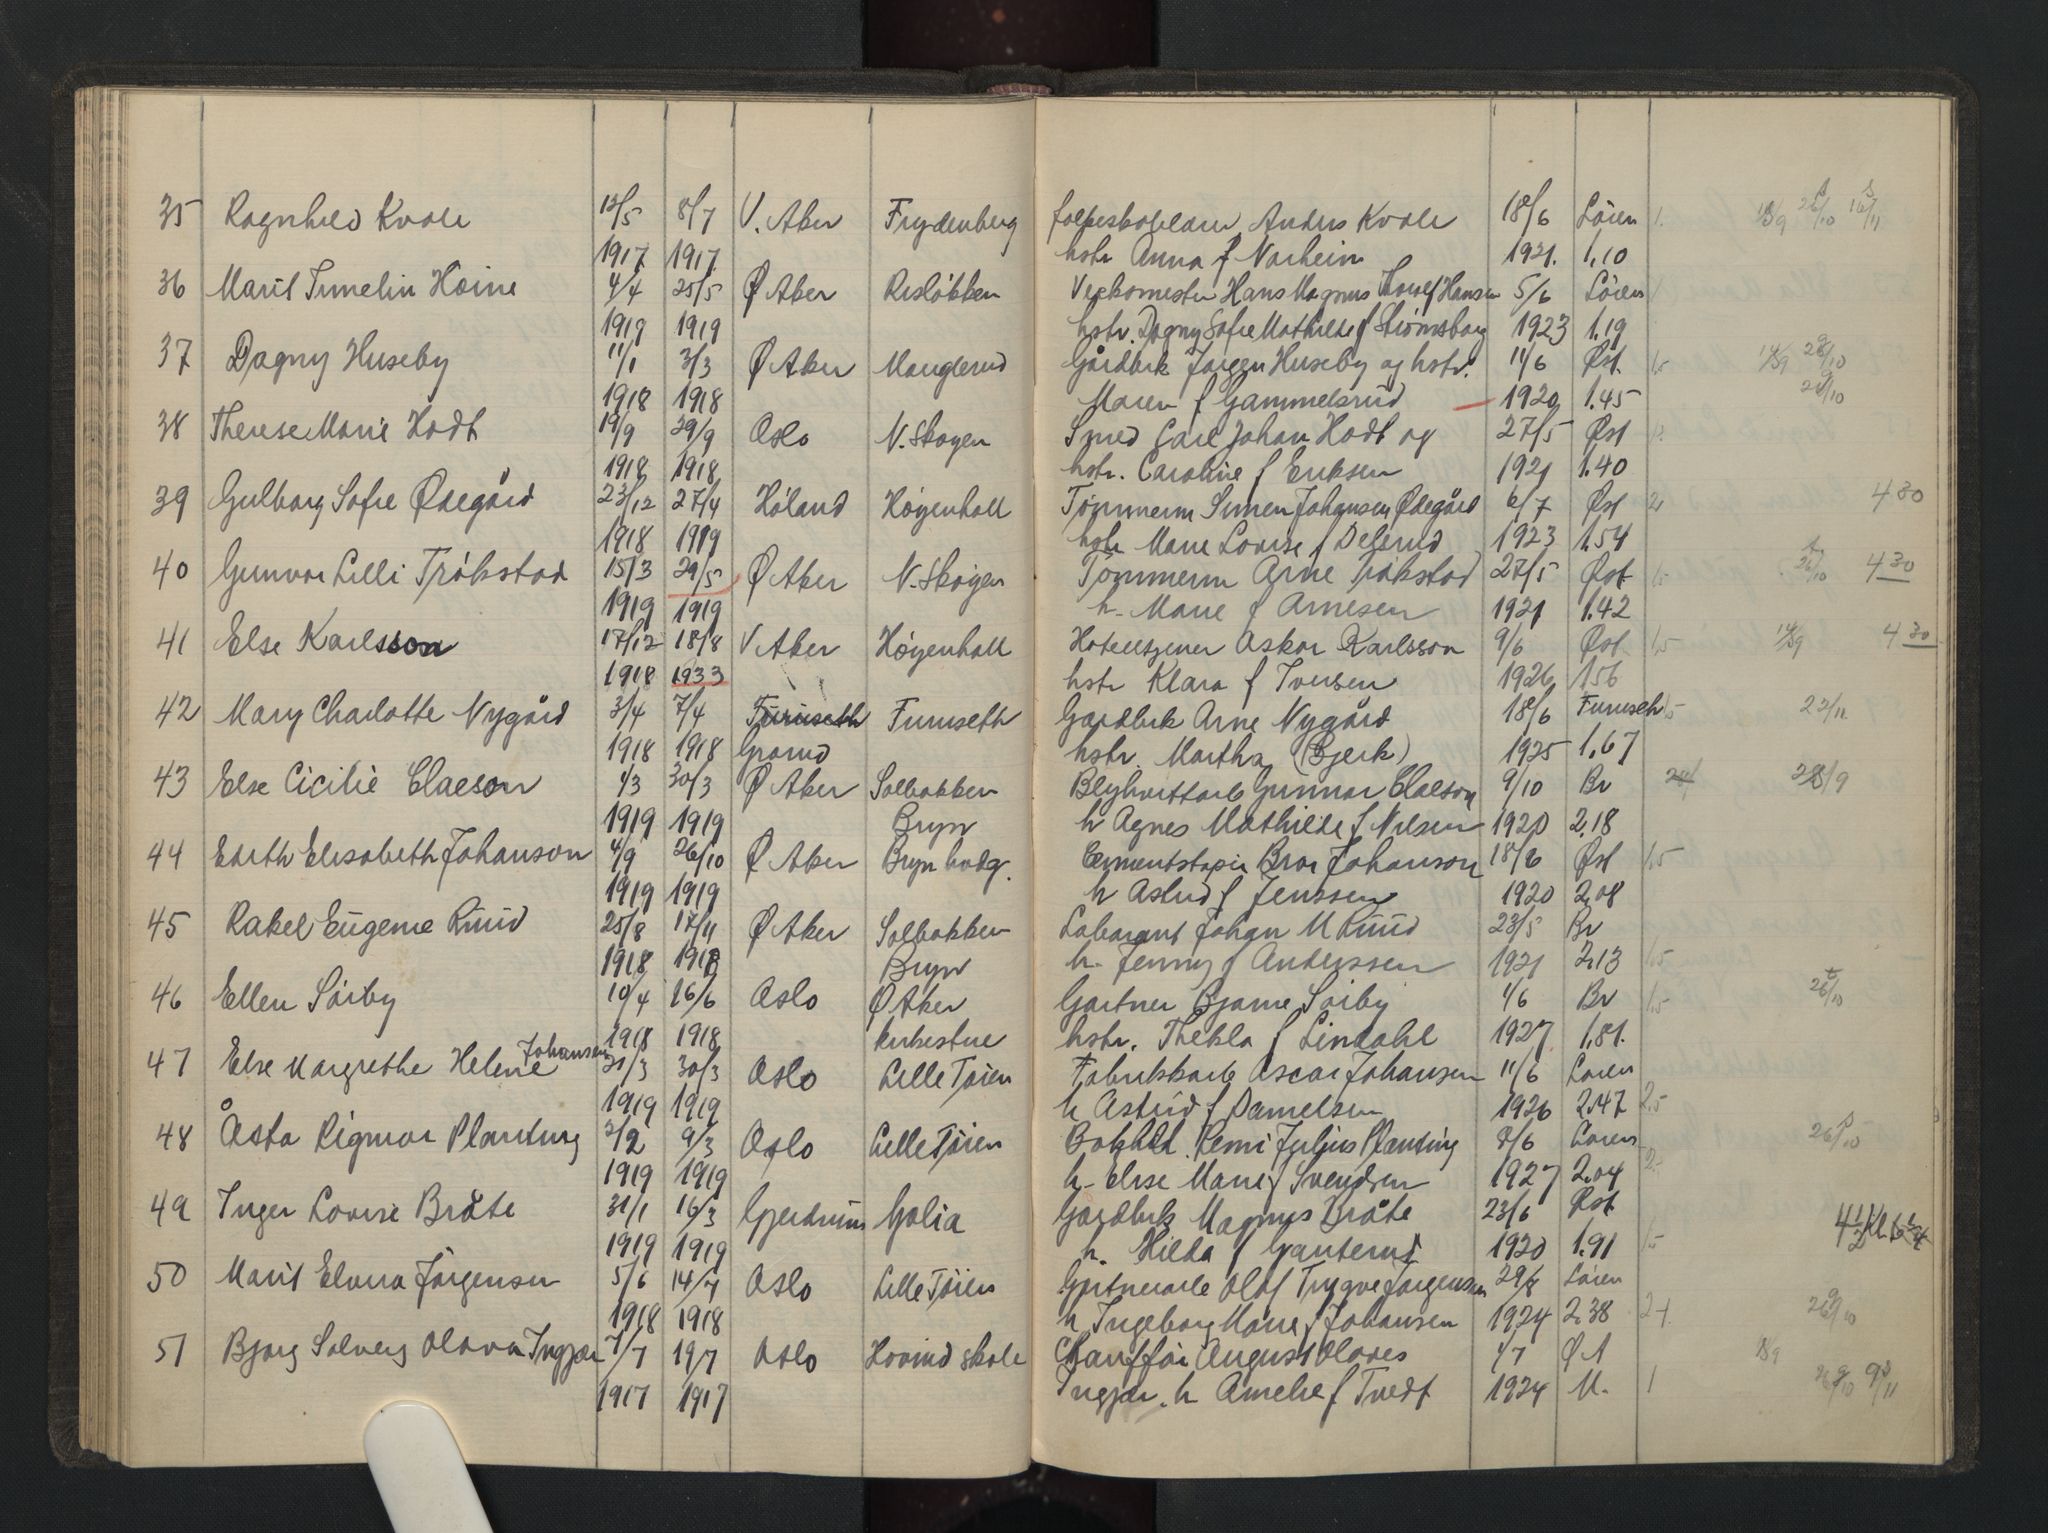 35 Ragnhild Kvale 12/5 8/7 V. Aker Frydenberg Anders Kvale 18/6 Løren 1.
1917 1917 hstr Anna f Norheim 1921. 1,10
36 Marit Tunelin Heine 4/4 25/5 Ø Aker Risløkken Hans Magnus Hansen 5/6 Løren
1919 1919 hstr. Dagny Sofie Mathilde f Strømsborg 1923 1.19
37 Dagny Huseby 11/1 3/3 Ø Aker Manglerud Gårdbrk Jørgen Huseby og hstr. 11/6 Øst. 1,5 14/9
1918 1918 Maren f Gammelsrud 1920 1.45
38 Therese Marie Hodt 19/9 29/9 Oslo N. Skøyen Smed Carl Johan Hodt og 27/5 Øst
1918 1918 hstr. Caroline f Eriksen 1921 1.40
39 Gulborg Sofie Ødegård 23/12 27/4 Høland Høyenhall Tømmerm Simen Johansen Ødegård 6/7 Øst 2 4 30
1918 1919 hstr Marie Lovise f Delerud 1923 1.54
40 Gunvor Lilli Trøkstad 15/3 29/5 Ø Aker N. Skøyen Tømmerm Arne Trøkstad 27/5 Øst 1,5 26/10 4 30
1919 1919 h. Marie f Arnesen 1921 1.42
41 Else Karlsson 17/12 18/8 V Aker Høyenhall Hotelltjener Oskar Karlsson 9/6 Øst 1,5 14/9 4 30
1918 1933 hstr Klara f Iversen 1926 1.56
42 Mary Charlotte Nygård 3/4 7/4 Furuseth Furuseth Gardbrk Arne Nygård 18/6 Furuseth 1,5 22/11
1918 1918 Grorud hstr. Martha (Bjerk) 1925 1,67
43 Else Cicilie Claeson 1/3 30/3 Ø Aker Solbakken Blyhvittarb Gunnar Claeson 9/10 Br 28/9
1919 1919 Bryn h Agnes Mathilde f Nilsen 1920 2.18
44 Edith Elisabeth Johanson 4/9 26/10 Ø Aker Bryn hvdg. Cementstøper Bror Johanson 18/6 Øst 1,5
1919 1919 h Astrid f Jenssen 1920 2.08
45 Rakel Eugenie Ruud 25/8 17/11 Ø Aker Solbakken Laborant Johan M Ruud 23/5 Br
1918 1918 Bryn h. Jenny f Anderssen 1921 2,13 1,5
46 Ellen Sørby 10/4 16/6 Oslo Ø Aker Gartner Bjarne Sørby 1/6 Br 1,5 26/10
1918 1918 kirkestue hstr. Thekla f Lindahl 1927 1,81.
47 Else Margrethe Helene Johansen 21/3 30/3 Oslo Lille Tøien Fabrikkarb Oscar Johansen 11/6 Løren
1919 1919 h Astrid f Danielsen 1926 2.47 2,5
48 Åsta Rigmor Planting 2/2 9/3 Oslo Lille Tøien Remi Julius Planting 8/6 Løren 26/10
1919 1919 h. Elise Marie f Svendsen 1927 2.04
49 Inger Lovise Bråte 31/1 16/3 Gjerdrum Golia Gardbrk Magnus Bråte 23/6 Øst
1919 1919 h. Hilda f Ganterud 1920 1.91 1,5
50 Marit Elvira Jørgensen 5/6 14/7 Oslo Lille Tøien Gartnerarb Olaf Trygve Jørgensen 29/8 Løren
1918 1918 h Ingeborg Marie f Johansen 1924 2.38 26/10
51 Bjørg Solveig Olava Ingjær 7/7 19/7 Oslo Hovind skole Chauffør August Olaves 4/7 Ø A
1917 1917 Ingjær. h Amelie f Tvedt 1924 U. 1